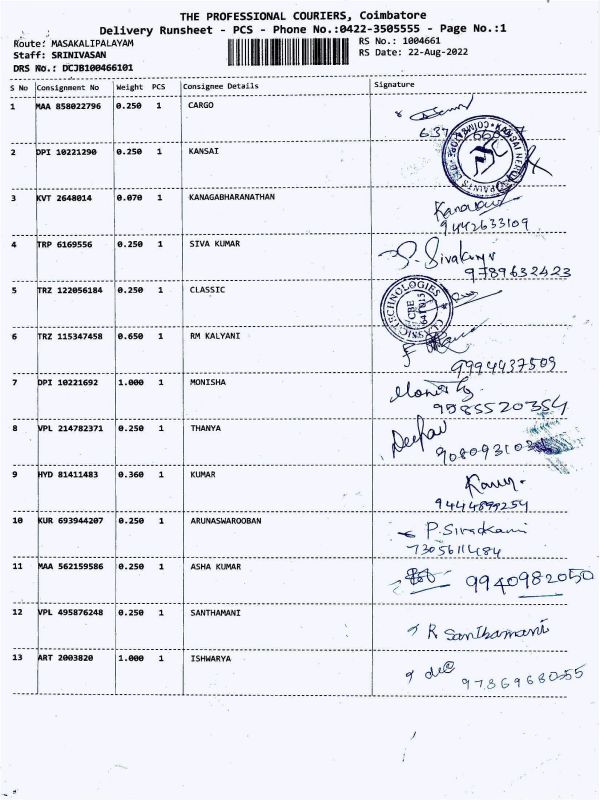 THE PROFESSIONAL COURIERS, Coimbatore
Delivery Runsheet - PCS - Phone No.:0422-3505555 - Page No.:1
Route: MASAKALIPALAYAM
RS No.: 1004661
Staff: SRINIVASAN
RS Date: 22-Aug-2022
DRS No.: DCJB100466101
S No Consignment No Weight PCS Consignee Details Signature
1 MAA 858022796 0.250 1 CARGO
2 DPI 10221290 0.250 1 KANSAI
3 KVT 2648014 0.070 1 KANAGABHARANATHAN
9442633109
4 TRP 6169556 0.250 1 SIVA KUMAR S. Sivakumar
9789632423
5 TRZ 122056184 0.250 1 CLASSIC
CLASSIC TECHNOLOGIES
CBE
641015
6 TRZ 115347458 0.650 1 RM KALYANI
9994437509
7 DPI 10221692 1.000 1 MONISHA
9985520354
8 VPL 214782371 0.250 1 THANYA
9 HYD 81411483 0.360 1 KUMAR
9444899254
10 KUR 693944207 0.250 1 ARUNASWAROOBAN
7305611484
11 MAA 562159586 0.250 1 ASHA KUMAR 9940982050
12 VPL 495876248 0.250 1 SANTHAMANI R Santhamani
13 ART 2003820 1.000 1 ISHWARYA